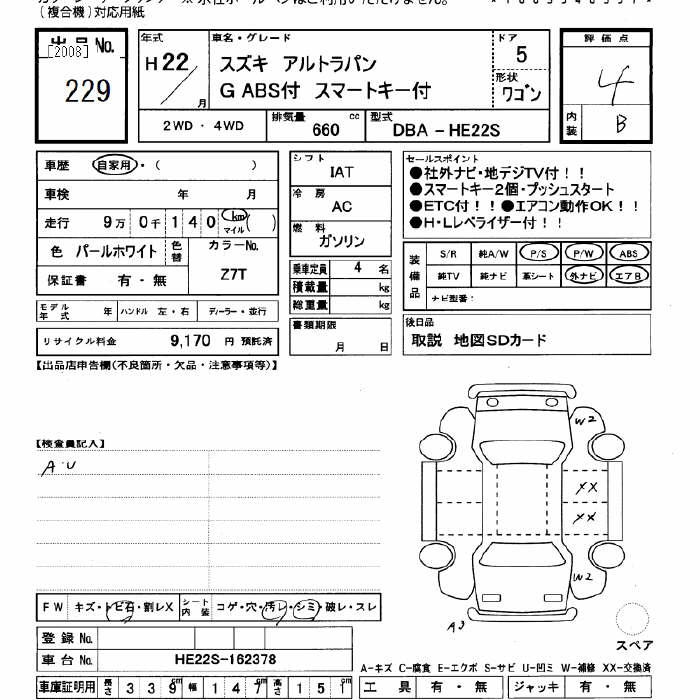 (複合機)対応用紙
出品No.
[2008]
229
年式
H22/月
車名・グレード
スズキ アルトラパン
G ABS付 スマートキー付
ドア
5
形状
ワゴン
評価点
4
内装
B
2WD・4WD
排気量 660 cc
型式 DBA-HE22S
車歴 自家用・( )
車検 年 月
走行 9万0千140 km マイル( )
色 パールホワイト 色替
カラーNo.
Z7T
保証書 有・無
モデル年式 年 ハンドル 左・右 ディーラー・並行
リサイクル料金 9,170 円 預託済
シフト
IAT
冷房
AC
燃料
ガソリン
乗車定員 4 名
積載量 kg
総重量 kg
書類期限
月 日
セールスポイント
●社外ナビ・地デジTV付!!
●スマートキー2個・プッシュスタート
●ETC付!!●エアコン動作OK!!
●H・Lレベライザー付!!
装備品
S/R 純A/W P/S P/W ABS
純TV 純ナビ 革シート 外ナビ エアB
ナビ型番:
後日品
取説 地図SDカード
【出品店申告欄(不良箇所・欠品・注意事項等)】
【検査員記入】
A・U
W2
XX
XX
W2
A3
スペア
FW キズ・トビ石・割レX
シート内装 コゲ・穴・汚レ・シミ・破レ・スレ
登録No.
車台No. HE22S-162378
車庫証明用 長さ 339cm 幅 147cm 高さ 151cm
A-キズ C-腐食 E-エクボ S-サビ U-凹ミ W-補修 XX-交換済
工具 有・無 ジャッキ 有・無